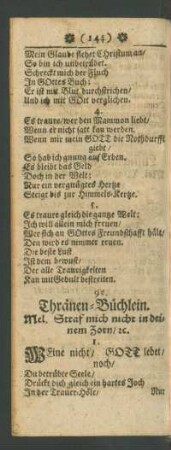 (144)
Mein Glaube siehet Christum an/
So bin ich unbetrübet.
Schreckt mich der Fluch
In GOttes Buch:
Er ist mit Blut durchstrichen/
Und ich mit GOtt verglichen.
4.
Es traure/ wer den Mammon liebt/
Wenn er nicht satt kan werden.
Wenn mir mein GOTT die Nothdurfft
giebt/
So hab ich gnung auf Erden.
Es bleibt das Geld
Doch in der Welt;
Nur ein vergnügtes Hertze
Steigt bis zur Himmels-Kertze.
5.
Es traure gleich die gantze Welt;
Ich will allein mich freuen/
Wer sich an GOttes Freundschafft hält/
Den wird es nimmer reuen.
Die beste Lust
Ist dem bewust/
Der alle Traurigkeiten
Kan mit Gedult bestreiten.
91.
Thränen-Büchlein.
Mel. Straf mich nicht in dei-
nem Zorn/ ec.
1.
WEine nicht/ GOTT lebet
noch/
Du betrübte Seele/
Drückt dich gleich ein hartes Joch
In der Trauer-Höle/